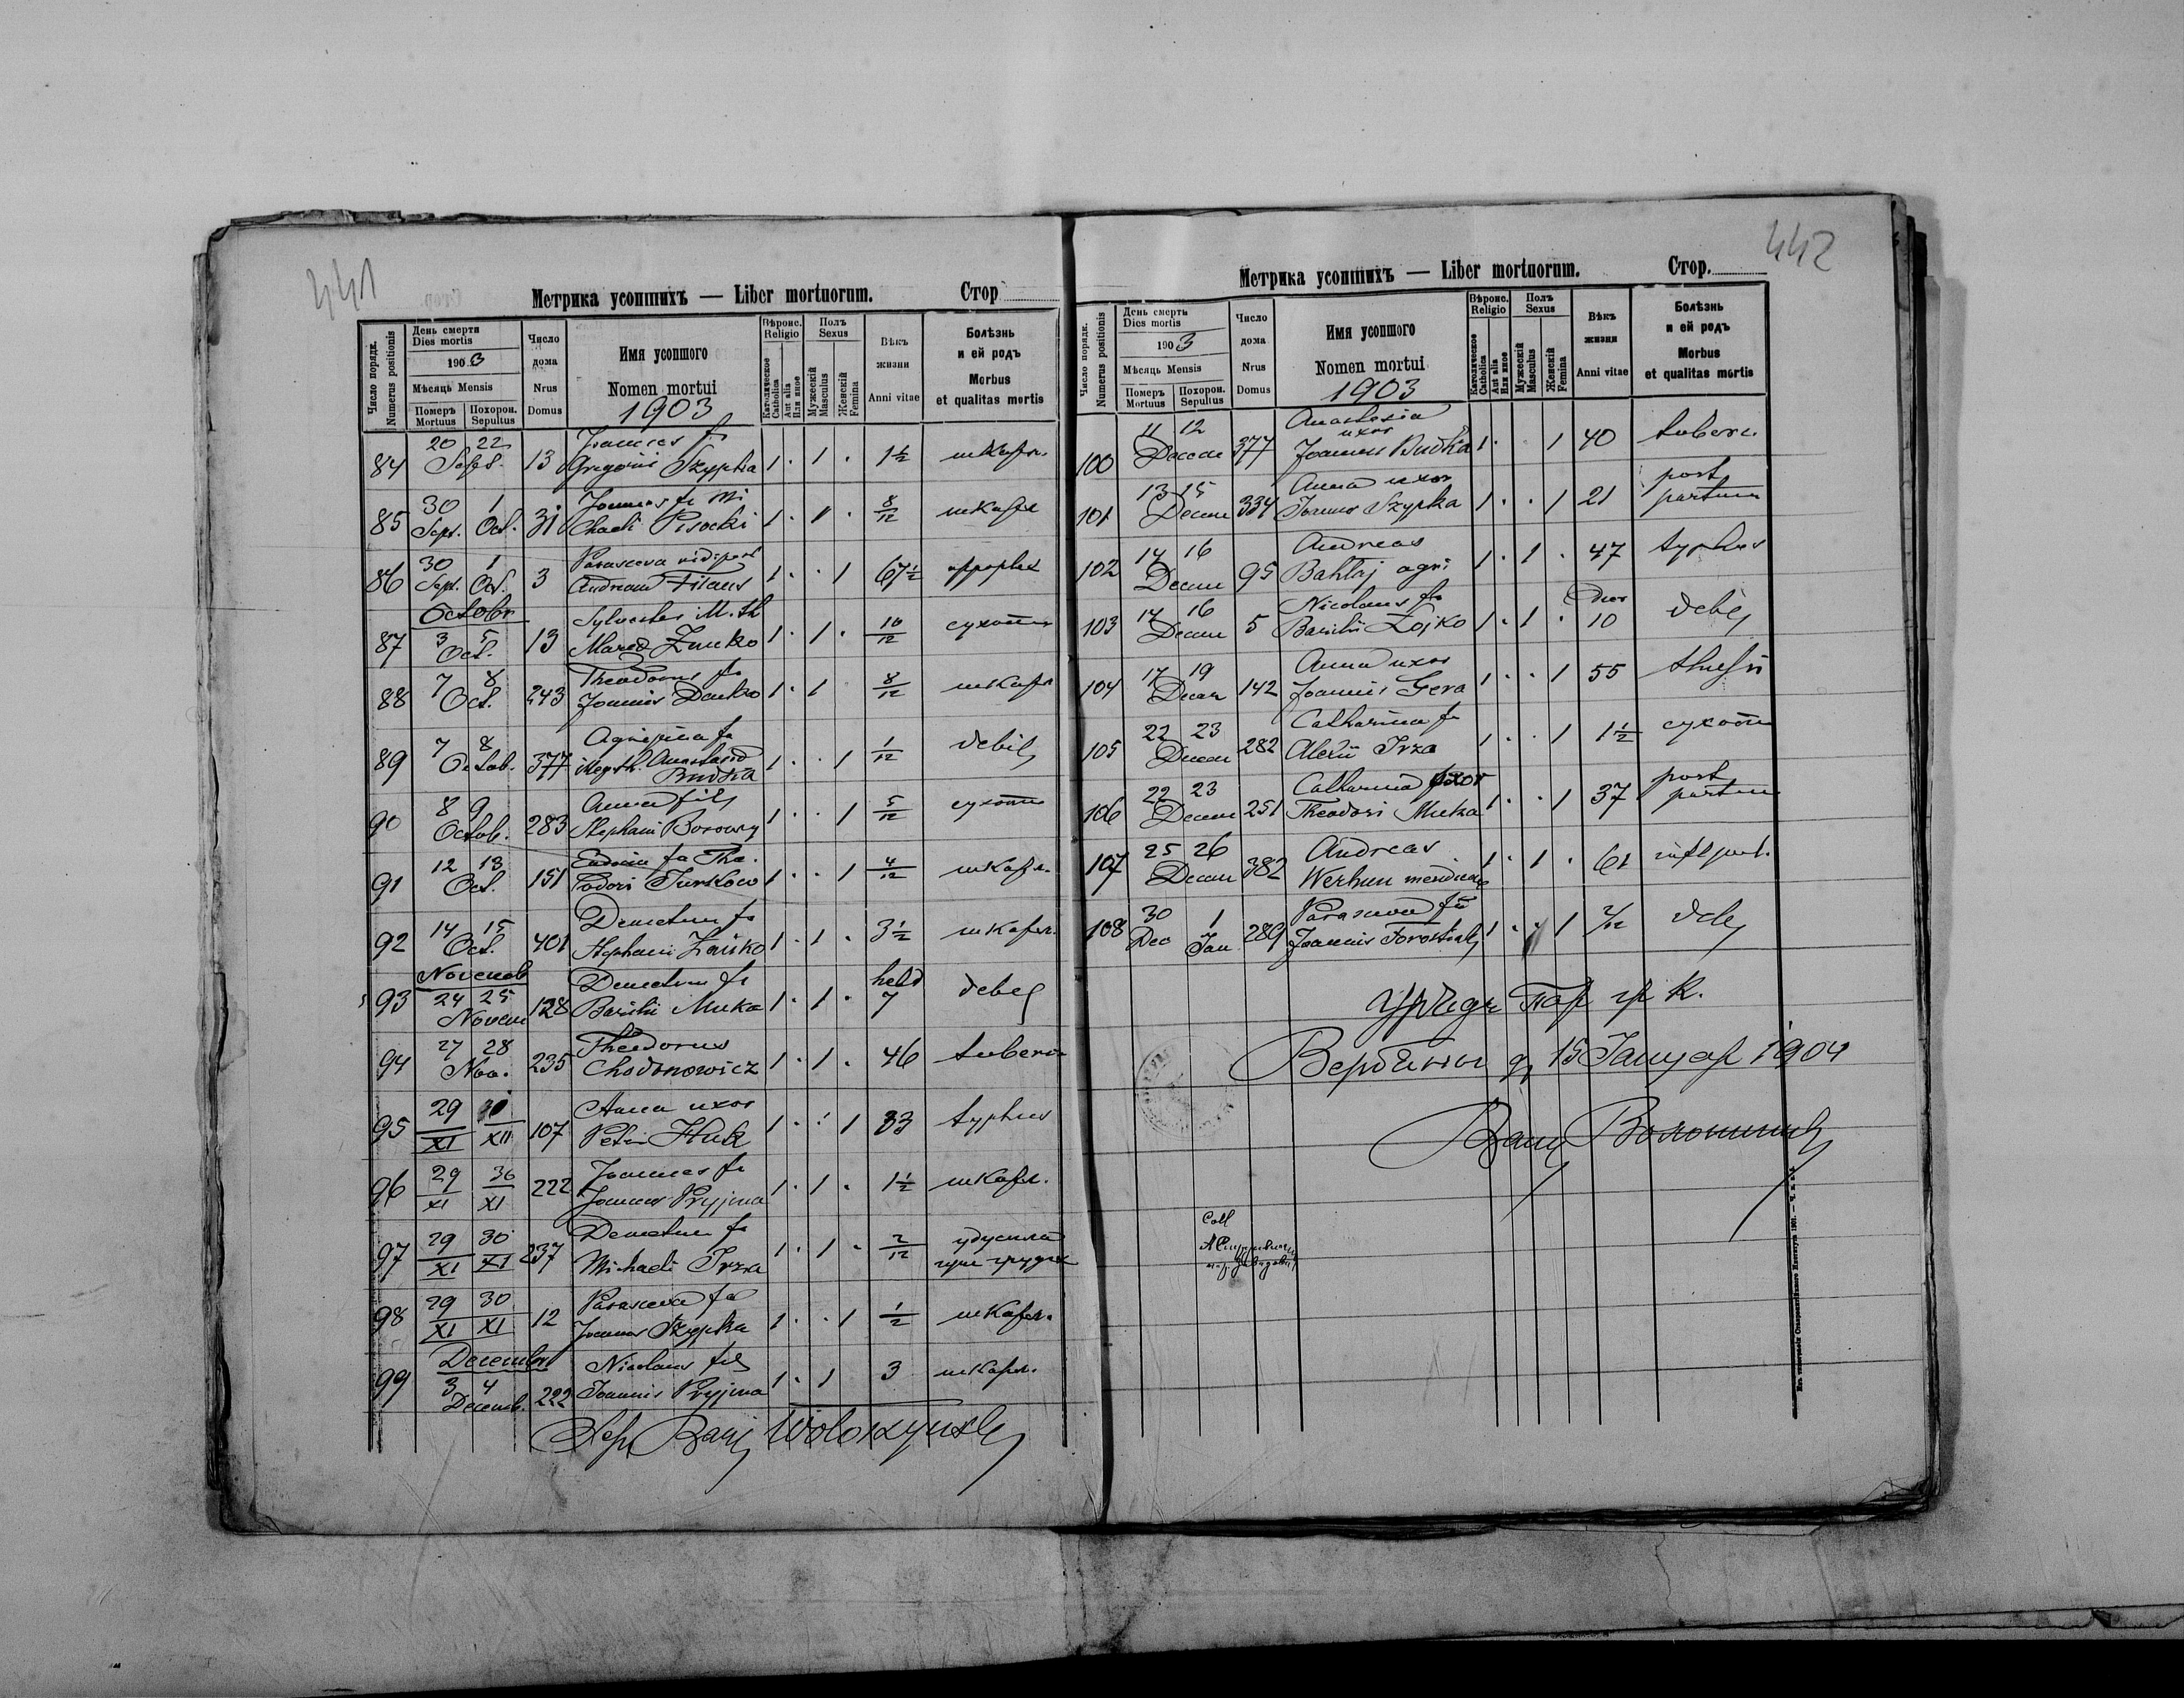 441
Метрика усопшихъ — Liber mortuorum. Стор
Число порядк. Numerus positionis
День смерти Dies mortis
1903
Мѣсяць Mensis
Померъ Mortuus
Похорон. Sepultus
Число дома Nrus Domus
Имя усопшого
Nomen mortui
1903
Вѣроис. Religio
Католическое Catholica
Aut alia Или иное
Полъ Sexus
Мужескій Masculus
Женскій Femina
Вѣкъ жизни Anni vitae
Болѣзнь и ей родъ Morbus et qualitas mortis
84 20 22 Sept. 13 Joannes f. Gregorii Szypka 1 . 1 . 1½ шкарл.
85 30 Sept. 1 Oct. 31 Joannes f. Michaeli Pisocki 1 . 1 . 8/12 шкарл
86 30 Sept. 1 Oct. 3 Parasceva Andreae 1 . . 1 67½ appoplex
Octobr
87 3 5 Oct. 13 Sylvester 1 . 1 . 10/12 сухоты
88 7 8 Oct. 243 Theodorus f. Joannis Danko 1 . 1 8/12 шкарл
89 7 8 Octob. 377 Agripina fa illegth. Anastasia Budka 1 . . 1 1/12 debil
90 8 9 Octob. 283 Anna fil Stephani Borowy 1 . . 1 5/12 сухоты
91 12 13 Oct. 151 Eudocia fa Theodori Jurkow 1 . . 1 4/12 шкарл.
92 14 15 Oct. 401 Demetrius f. Stephani 1 . 1 . 3½ шкарл.
Novemb
93 24 25 Novem 128 Demetrius f. Basilii Muka 1 . 1 . hebd 7 debil
94 27 28 Nov. 235 Theodorus Chodonowicz 1 . 1 . 46 tuberc
95 29 XI XII 107 Anna uxor Petri Huk 1 . . 1 33 typhus
96 29 XI 30 XI 222 Joannes f. Joannis Pryjma 1 . 1 . 1½ шкарл.
97 29 XI 30 XI 237 Demetrius f. Michaeli Irza 1 . 1 . 2/12
98 29 XI 30 XI 12 Parasceva fa Joannis Szypka 1 . . 1 1/12 шкарл.
Decembr
99 3 4 Decemb. 222 Nicolaus fil Joannis Pryjma 1 . 1 3 шкарл.
Wołoszyński
442
Метрика усопшихъ — Liber mortuorum. Стор.
Число порядк. Numerus positionis
День смерть Dies mortis
1903
Мѣсяць Mensis
Померъ Mortuus
Похорон. Sepultus
Число дома Nrus Domus
Имя усопшого
Nomen mortui
1903
Вѣроис. Religio
Католическое Catholica
Aut alia Или иное
Полъ Sexus
Мужескій Masculus
Женскій Femina
Вѣкъ жизни Anni vitae
Болѣзнь и ей родъ Morbus et qualitas mortis
100 11 12 Decem 377 Anastasia uxor Joannis Budka 1 . . 1 40 tuberc.
101 13 15 Decem 334 Anna uxor Joannis Szypka 1 . . 1 21 post partum
102 14 16 Decem 95 Andreas Bahlaj agri 1 . 1 . 47 typhus
103 14 16 Decem 5 Nicolaus f. Basilii Łojko 1 . 1 . dies 10 debil
104 17 19 Decem 142 Anna uxor Joannis Gera 1 . . 1 55
105 22 23 Decem 282 Catharina f. Alexii Irza 1 . . 1 1½ сухоты
106 22 23 Decem 251 Catharina uxor Theodori Muka 1 . . 1 37 post partum
107 25 26 Decem 382 Andreas Werhun 1 . 1 . 61
108 30 Dec 1 Jan 289 Parasceva fa Joannis 1 . . 1 2/12 deb
Урядъ Пар гр к.
15 Януар 1904
Волошинъ
Coll